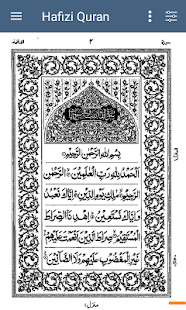 Hafizi Quran
٢
بِسْمِ اللهِ الرَّحْمٰنِ الرَّحِيْمِ
اَلْحَمْدُ لِلّٰهِ رَبِّ الْعٰلَمِيْنَ الرَّحْمٰنِ
الرَّحِيْمِ مٰلِكِ يَوْمِ الدِّيْنِ اِيَّاكَ نَعْبُدُ
وَاِيَّاكَ نَسْتَعِيْنُ اِهْدِنَا الصِّرَاطَ
الْمُسْتَقِيْمَ صِرَاطَ الَّذِيْنَ اَنْعَمْتَ عَلَيْهِمْ
غَيْرِ الْمَغْضُوْبِ عَلَيْهِمْ وَلَا الضَّآلِّيْنَ